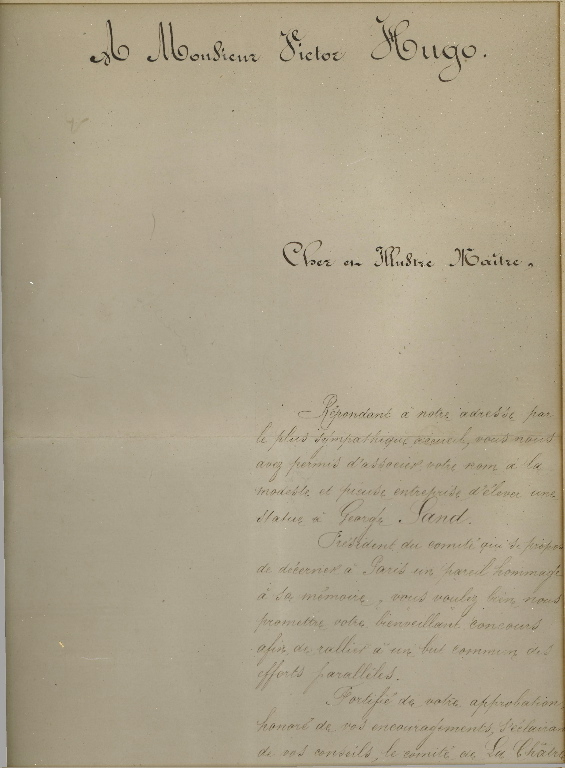 A Monsieur Victor Hugo.
Cher en Illustre Maître.
Répondant à notre adresse par
le plus sympathique accueil, vous nous
avez permis d'associer votre nom à la
modeste et pieuse entreprise d'élever une
statue à George Sand.
Président du comité qui se propos
de décerner à Paris un pareil hommage
à sa mémoire, vous voulez bien nous
promettre votre bienveillant concours
afin de rallier à un but commun des
efforts parallèles.
Fortifié de votre approbation,
honoré de vos encouragements, s'éclairan
de vos conseils, le comité de La Châtre